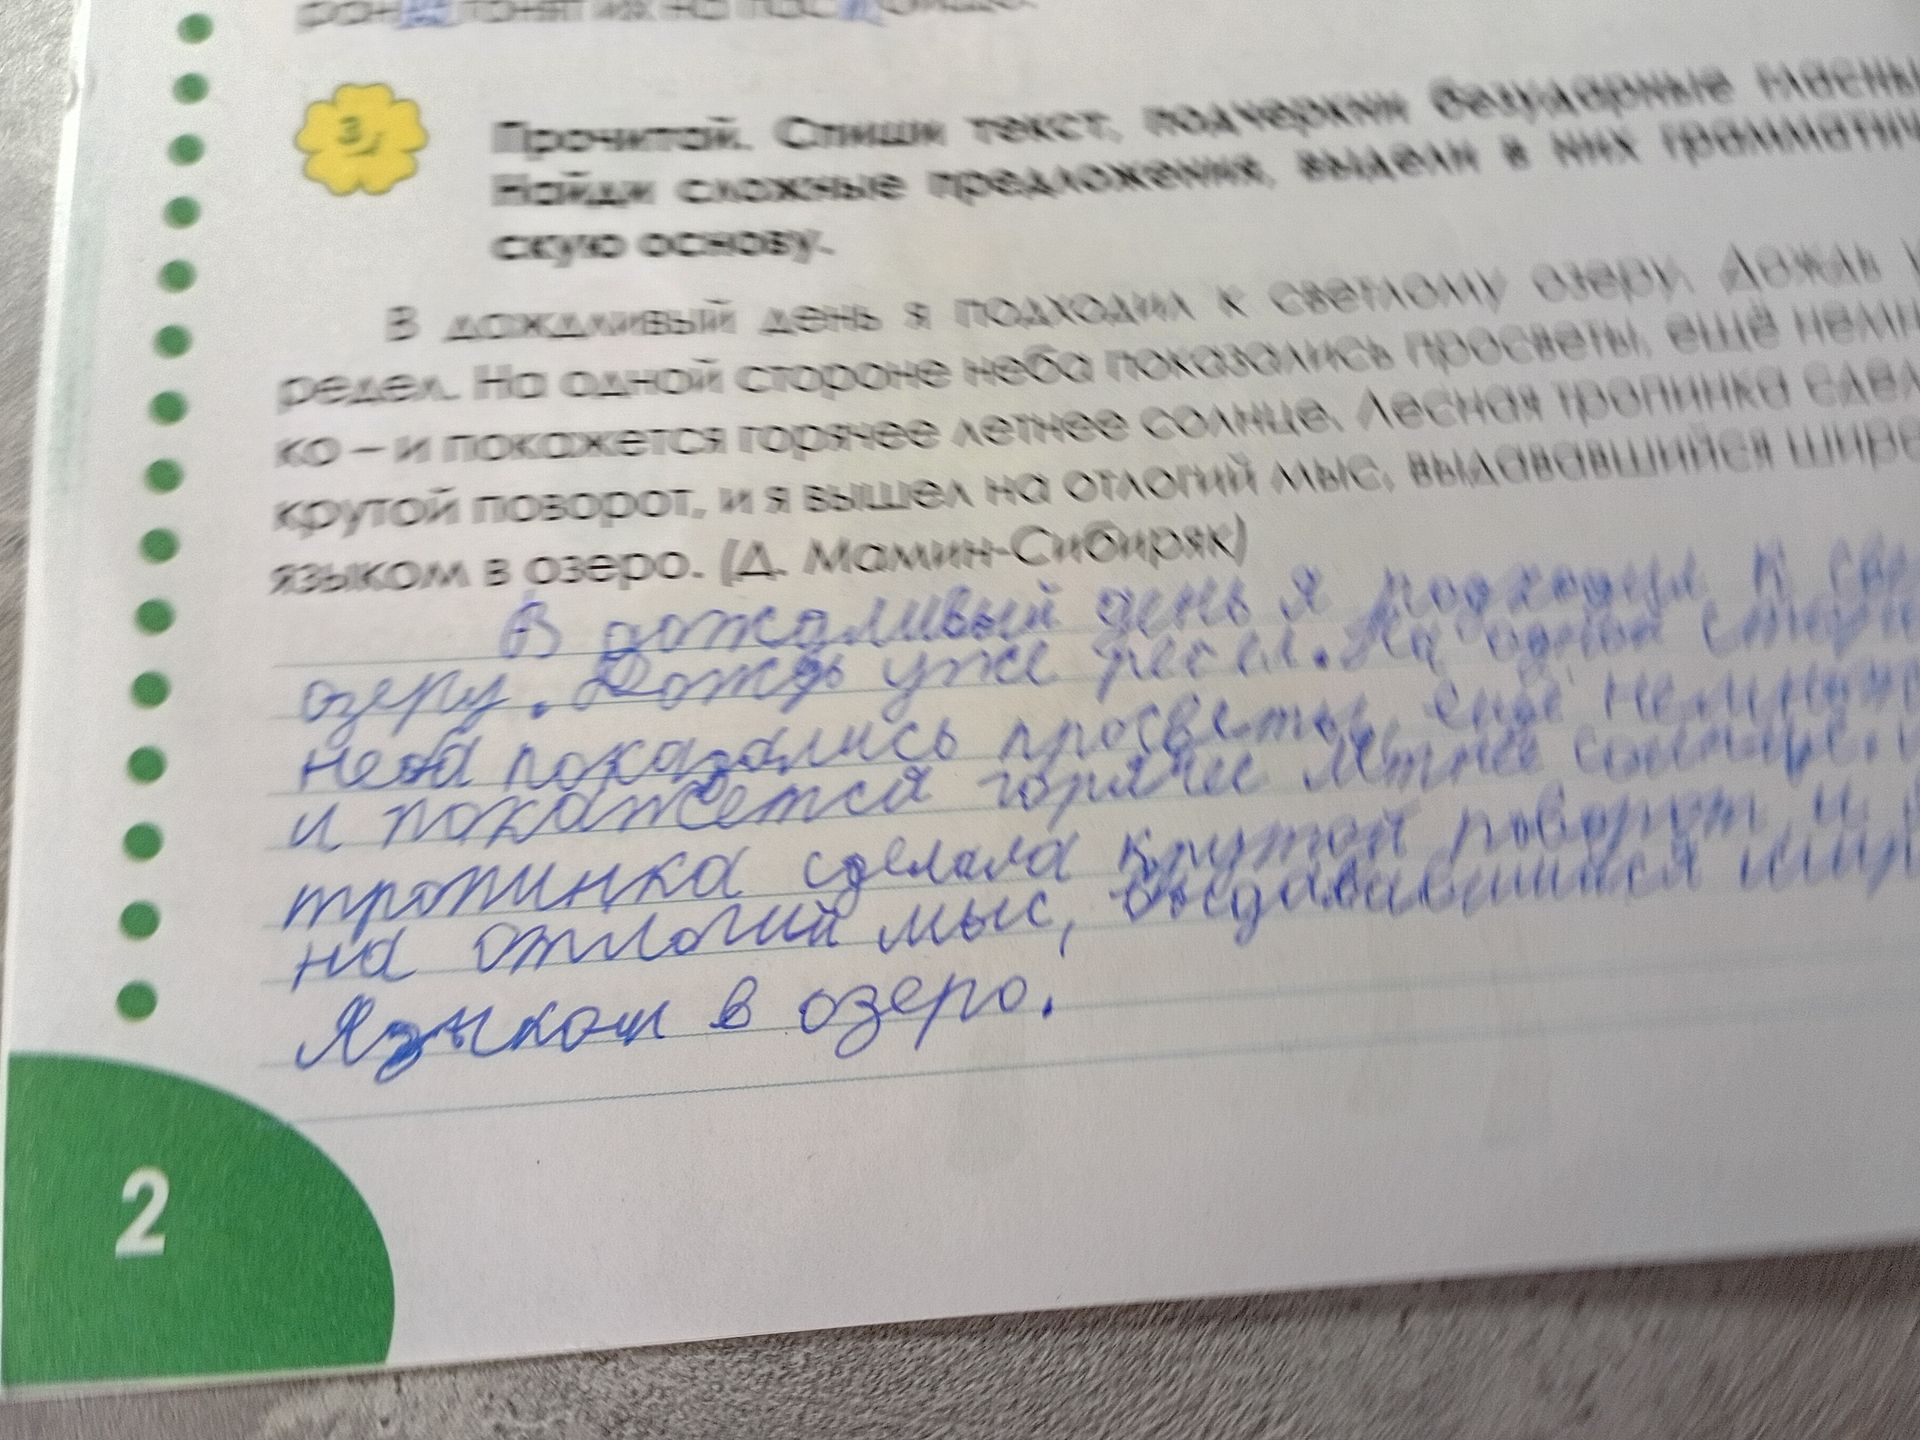 3.
Прочитай. Спиши текст, подчеркни безударные гласны
Найди сложные предложения, выдели в них грамматич
скую основу.
В дождливый день я подходил к светлому озеру. Дождь
редел. На одной стороне неба показались просветы, ещё немн
ко – и покажется горячее летнее солнце. Лесная тропинка сдел
крутой поворот, и я вышел на отлогий мыс, выдававшийся широ
языком в озеро. (Д. Мамин-Сибиряк)
В дождливый день я подходил к све
озеру. Дождь уже редел. На одной сторо
неба показались просветы, ещё немножко
и покажется горячее летнее солнце.
тропинка сделала крутой поворот и я
на отлогий мыс, выдававшийся широ
языком в озеро.
2